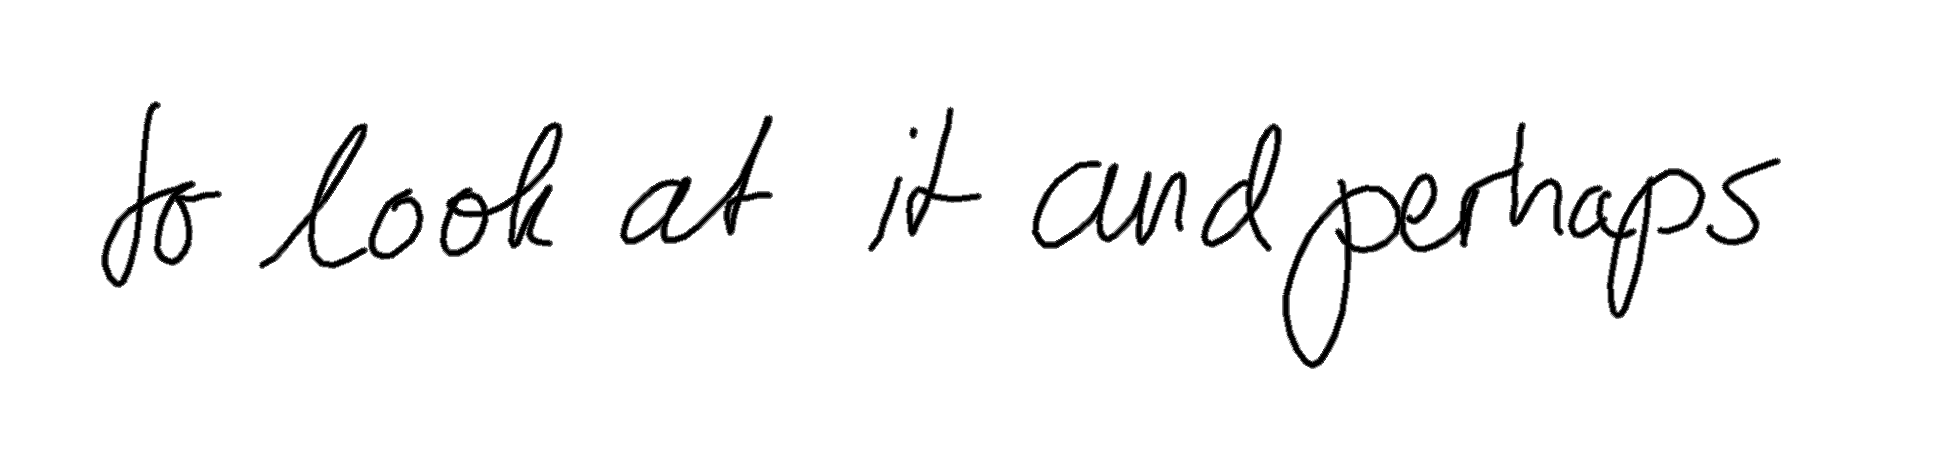 to look at it and perhaps